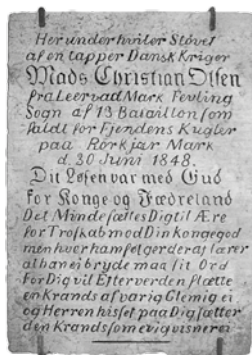 Herunder hviler Støvet
af en tapper Dansk Kriger
Mads Christian Olsen
fra Leervad Mark Fevling
Sogn af 13 Bataillon som
faldt for Fjendens Kugler
paa Rörkjær Mark
d. 30 Juni 1848.
Dit Løsen var med Gud
for Konge og Fædreland
Det Minde sættes Dig til Ære
for Troskab mod Din konge god
men hver ham følger deraf lærer
at han ei bryde maa sit Ord
for Dig vil Efterverden flætte
en Krands af varig Glemig ei
og Herren hisset paa Dig sætter
den Krands som evig visner ei